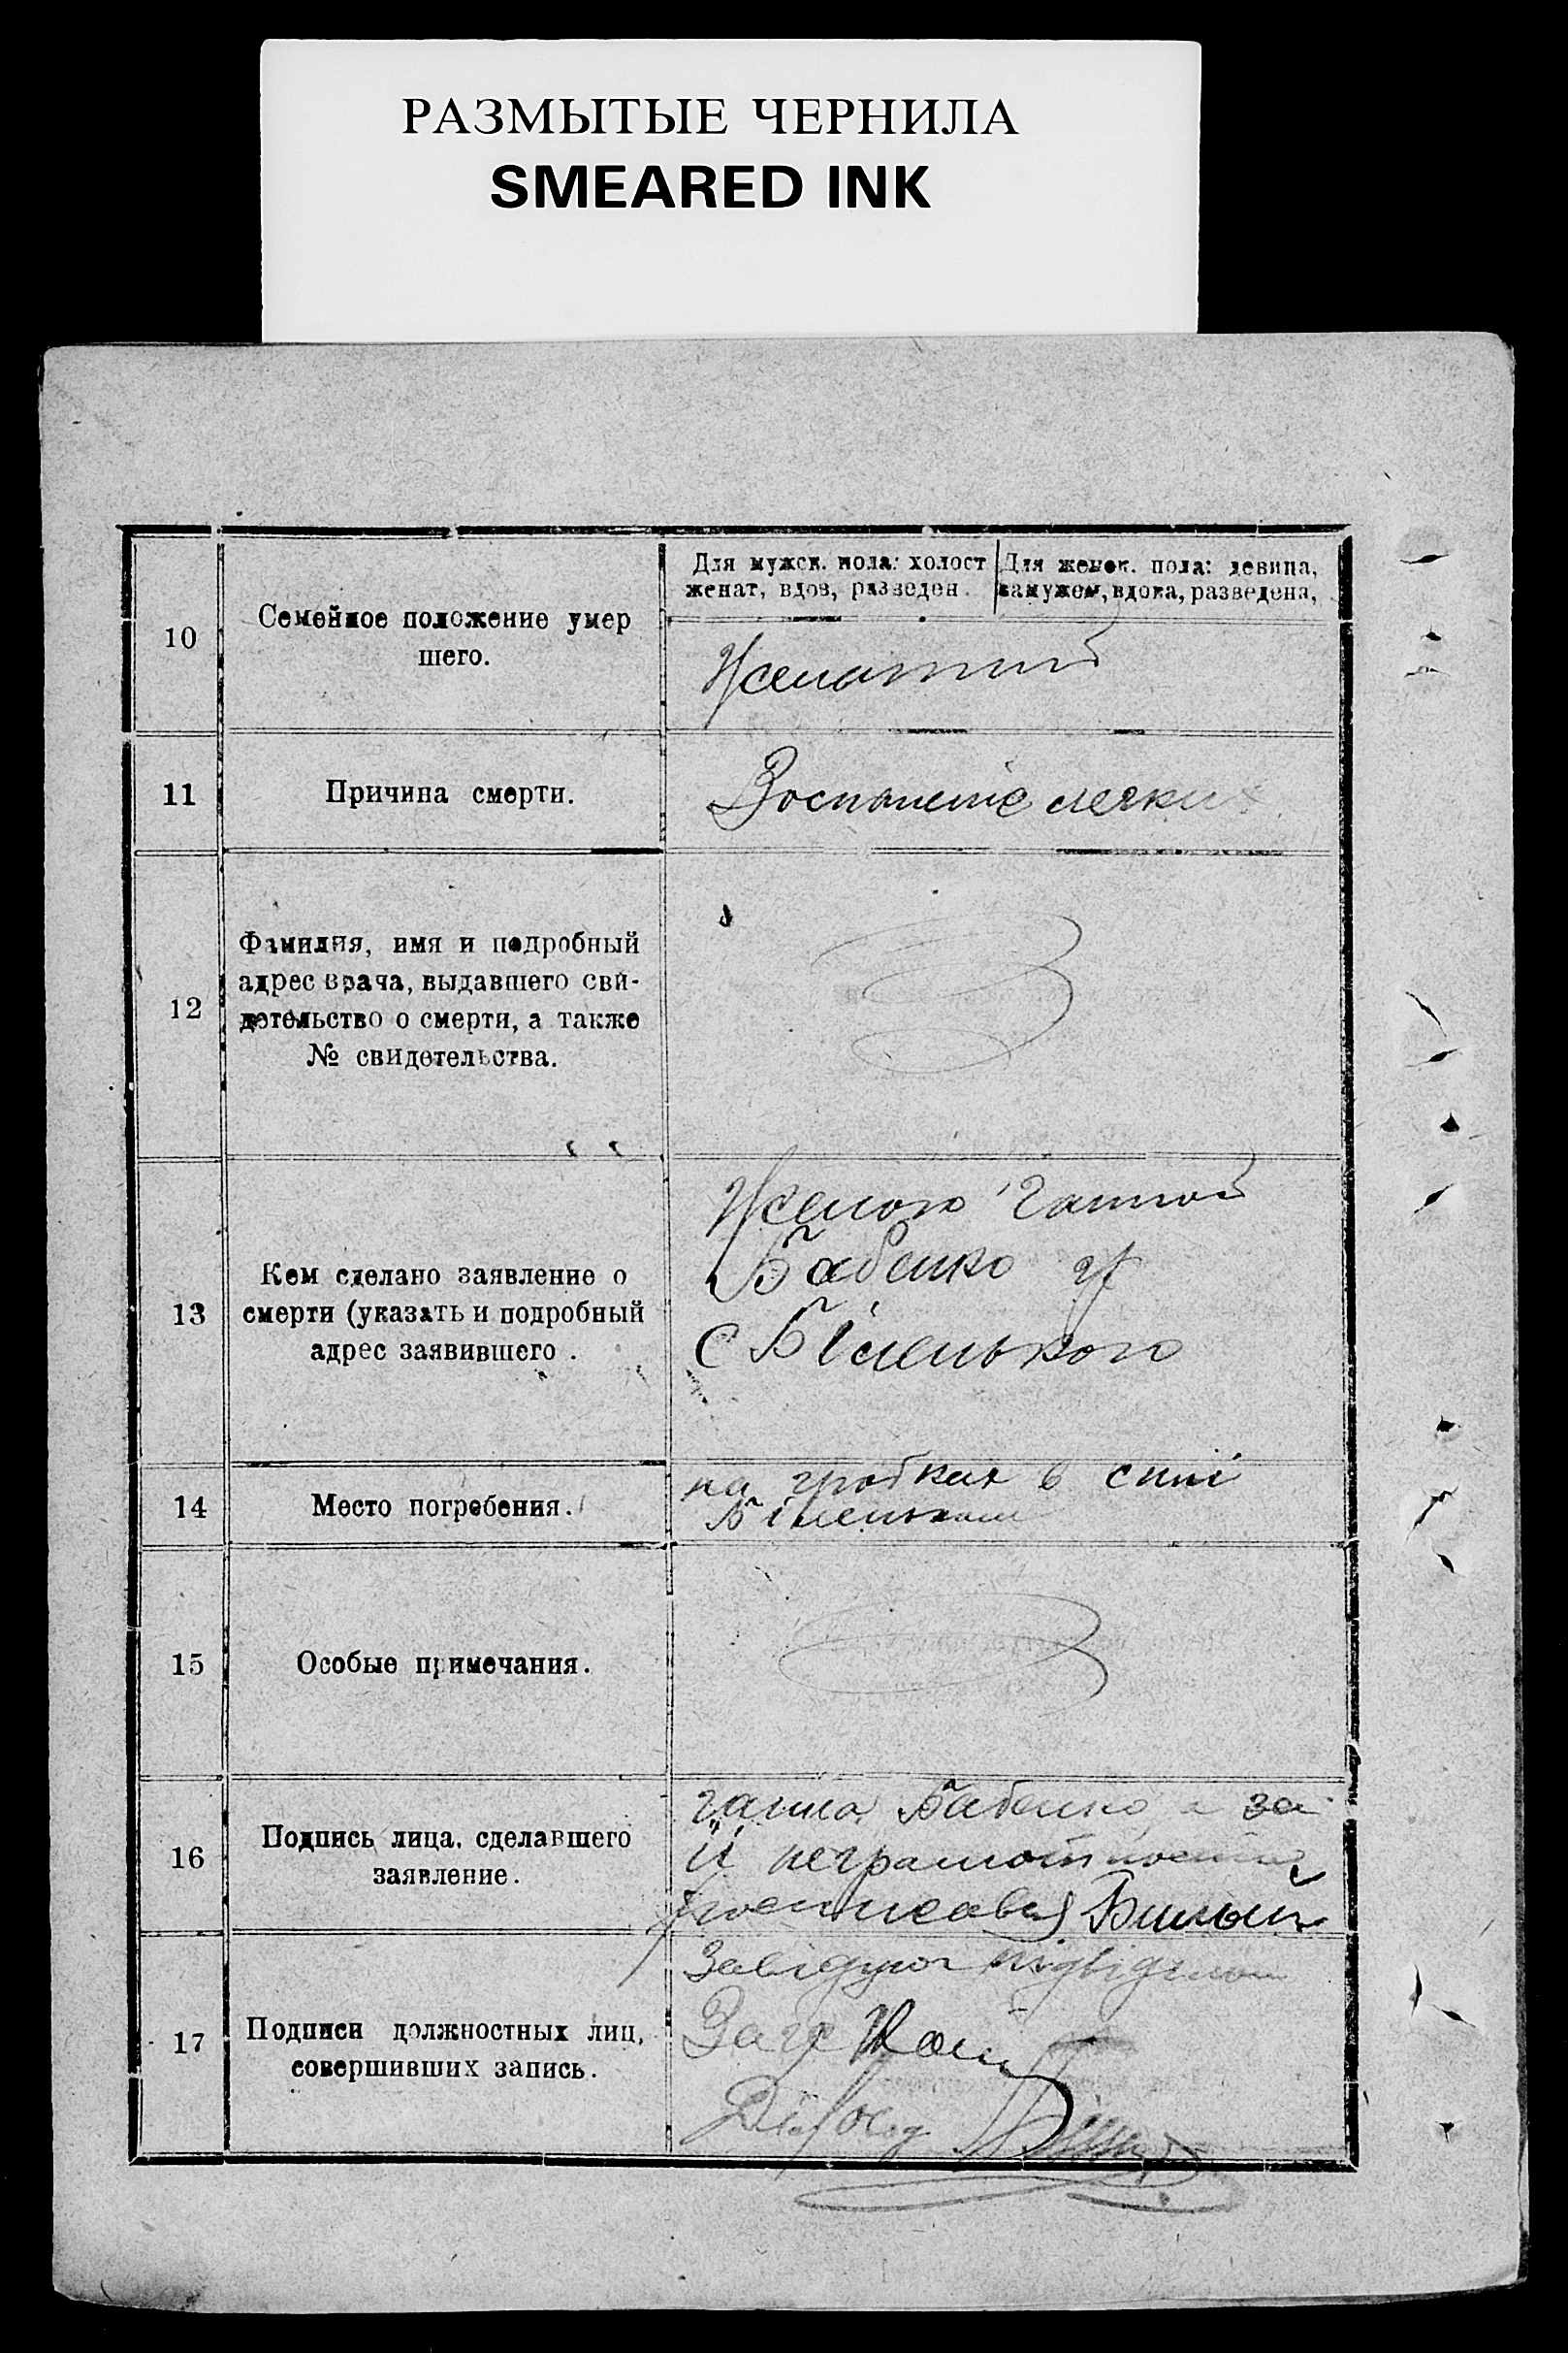 РАЗМЫТЫЕ ЧЕРНИЛА
SMEARED INK
10
Семейное положение умер
шего.
Для мужск. пола: холост
женат, вдов, разведен.
Для женск. пола: девица,
замужем, вдова, разведена,
Женатий
11
Причина смерти.
Воспаленіе легких
12
Фамилия, имя и подробный
адрес врача, выдавшего сви-
детельство о смерти, а также
№ свидетельства.
13
Кем сделано заявление о
смерти (указать и подробный
адрес заявившего.
Женою Ганною
Бабенко гр
с Біленького
14
Место погребения.
на гробках в силі
Біленьком
15
Особые примечания.
16
Подпись лица, сделавшего
заявление.
Ганна Бабенко а за
її неграмотностю
росписався Билый
17
Подписи должностных лиц,
совершивших запись.
Завідуюч підвідділом
Загс
Діловод